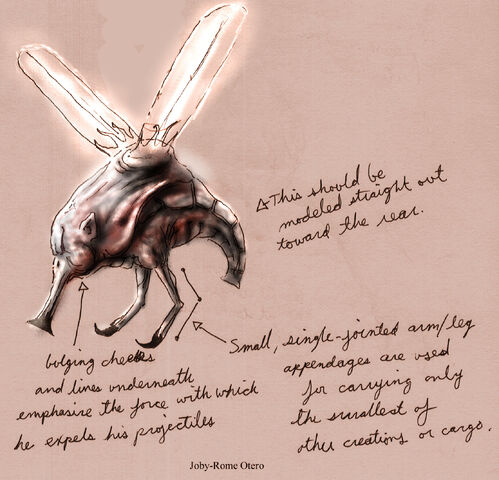 △This should be
modeled straight out
toward the rear.
Small, single-jointed arm/leg
appendages are used
for carrying only
the smallest of
other creations or cargo.
bulging cheeks
and lines underneath
emphasize the force with which
he expels his projectiles
Joby-Rome Otero